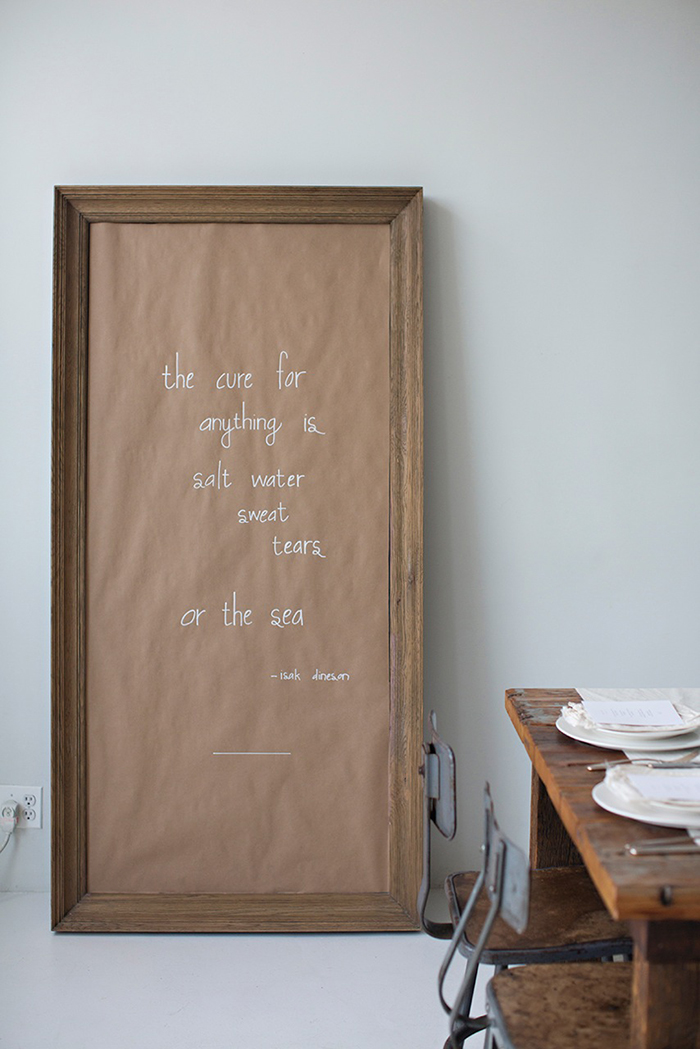 the cure for
anything is
salt water
sweat
tears
or the sea
- isak dineson